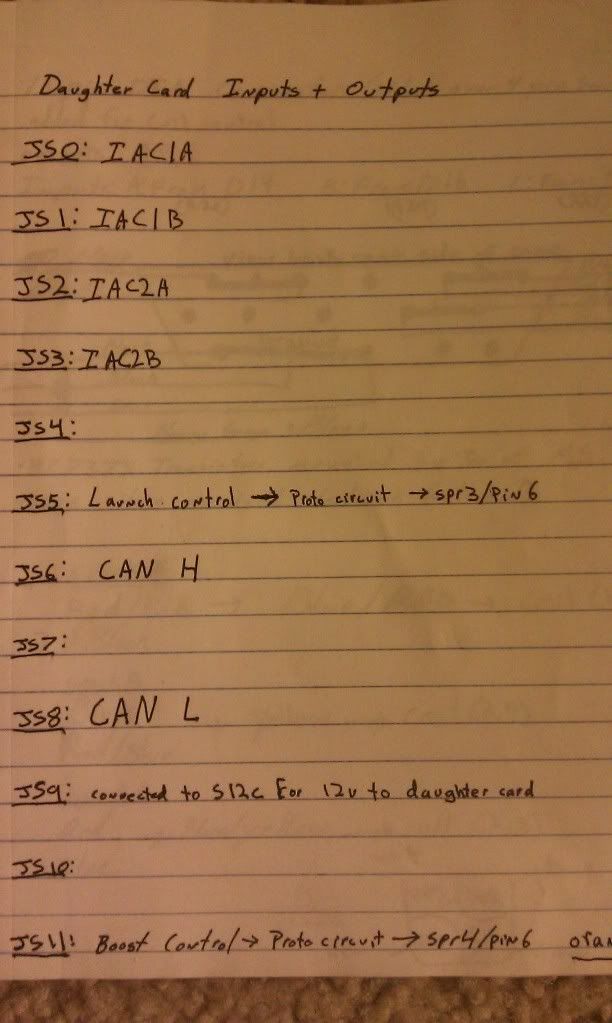 Daughter Card Inputs + Outputs
JS0: IAC1A
JS1: IAC1B
JS2: IAC2A
JS3: IAC2B
JS4:
JS5: Launch control → Proto circuit → spr3/Pin6
JS6: CAN H
JS7:
JS8: CAN L
JS9: connected to S12c For 12v to daughter card
JS10:
JS11: Boost Control → Proto circuit → spr4/pin6